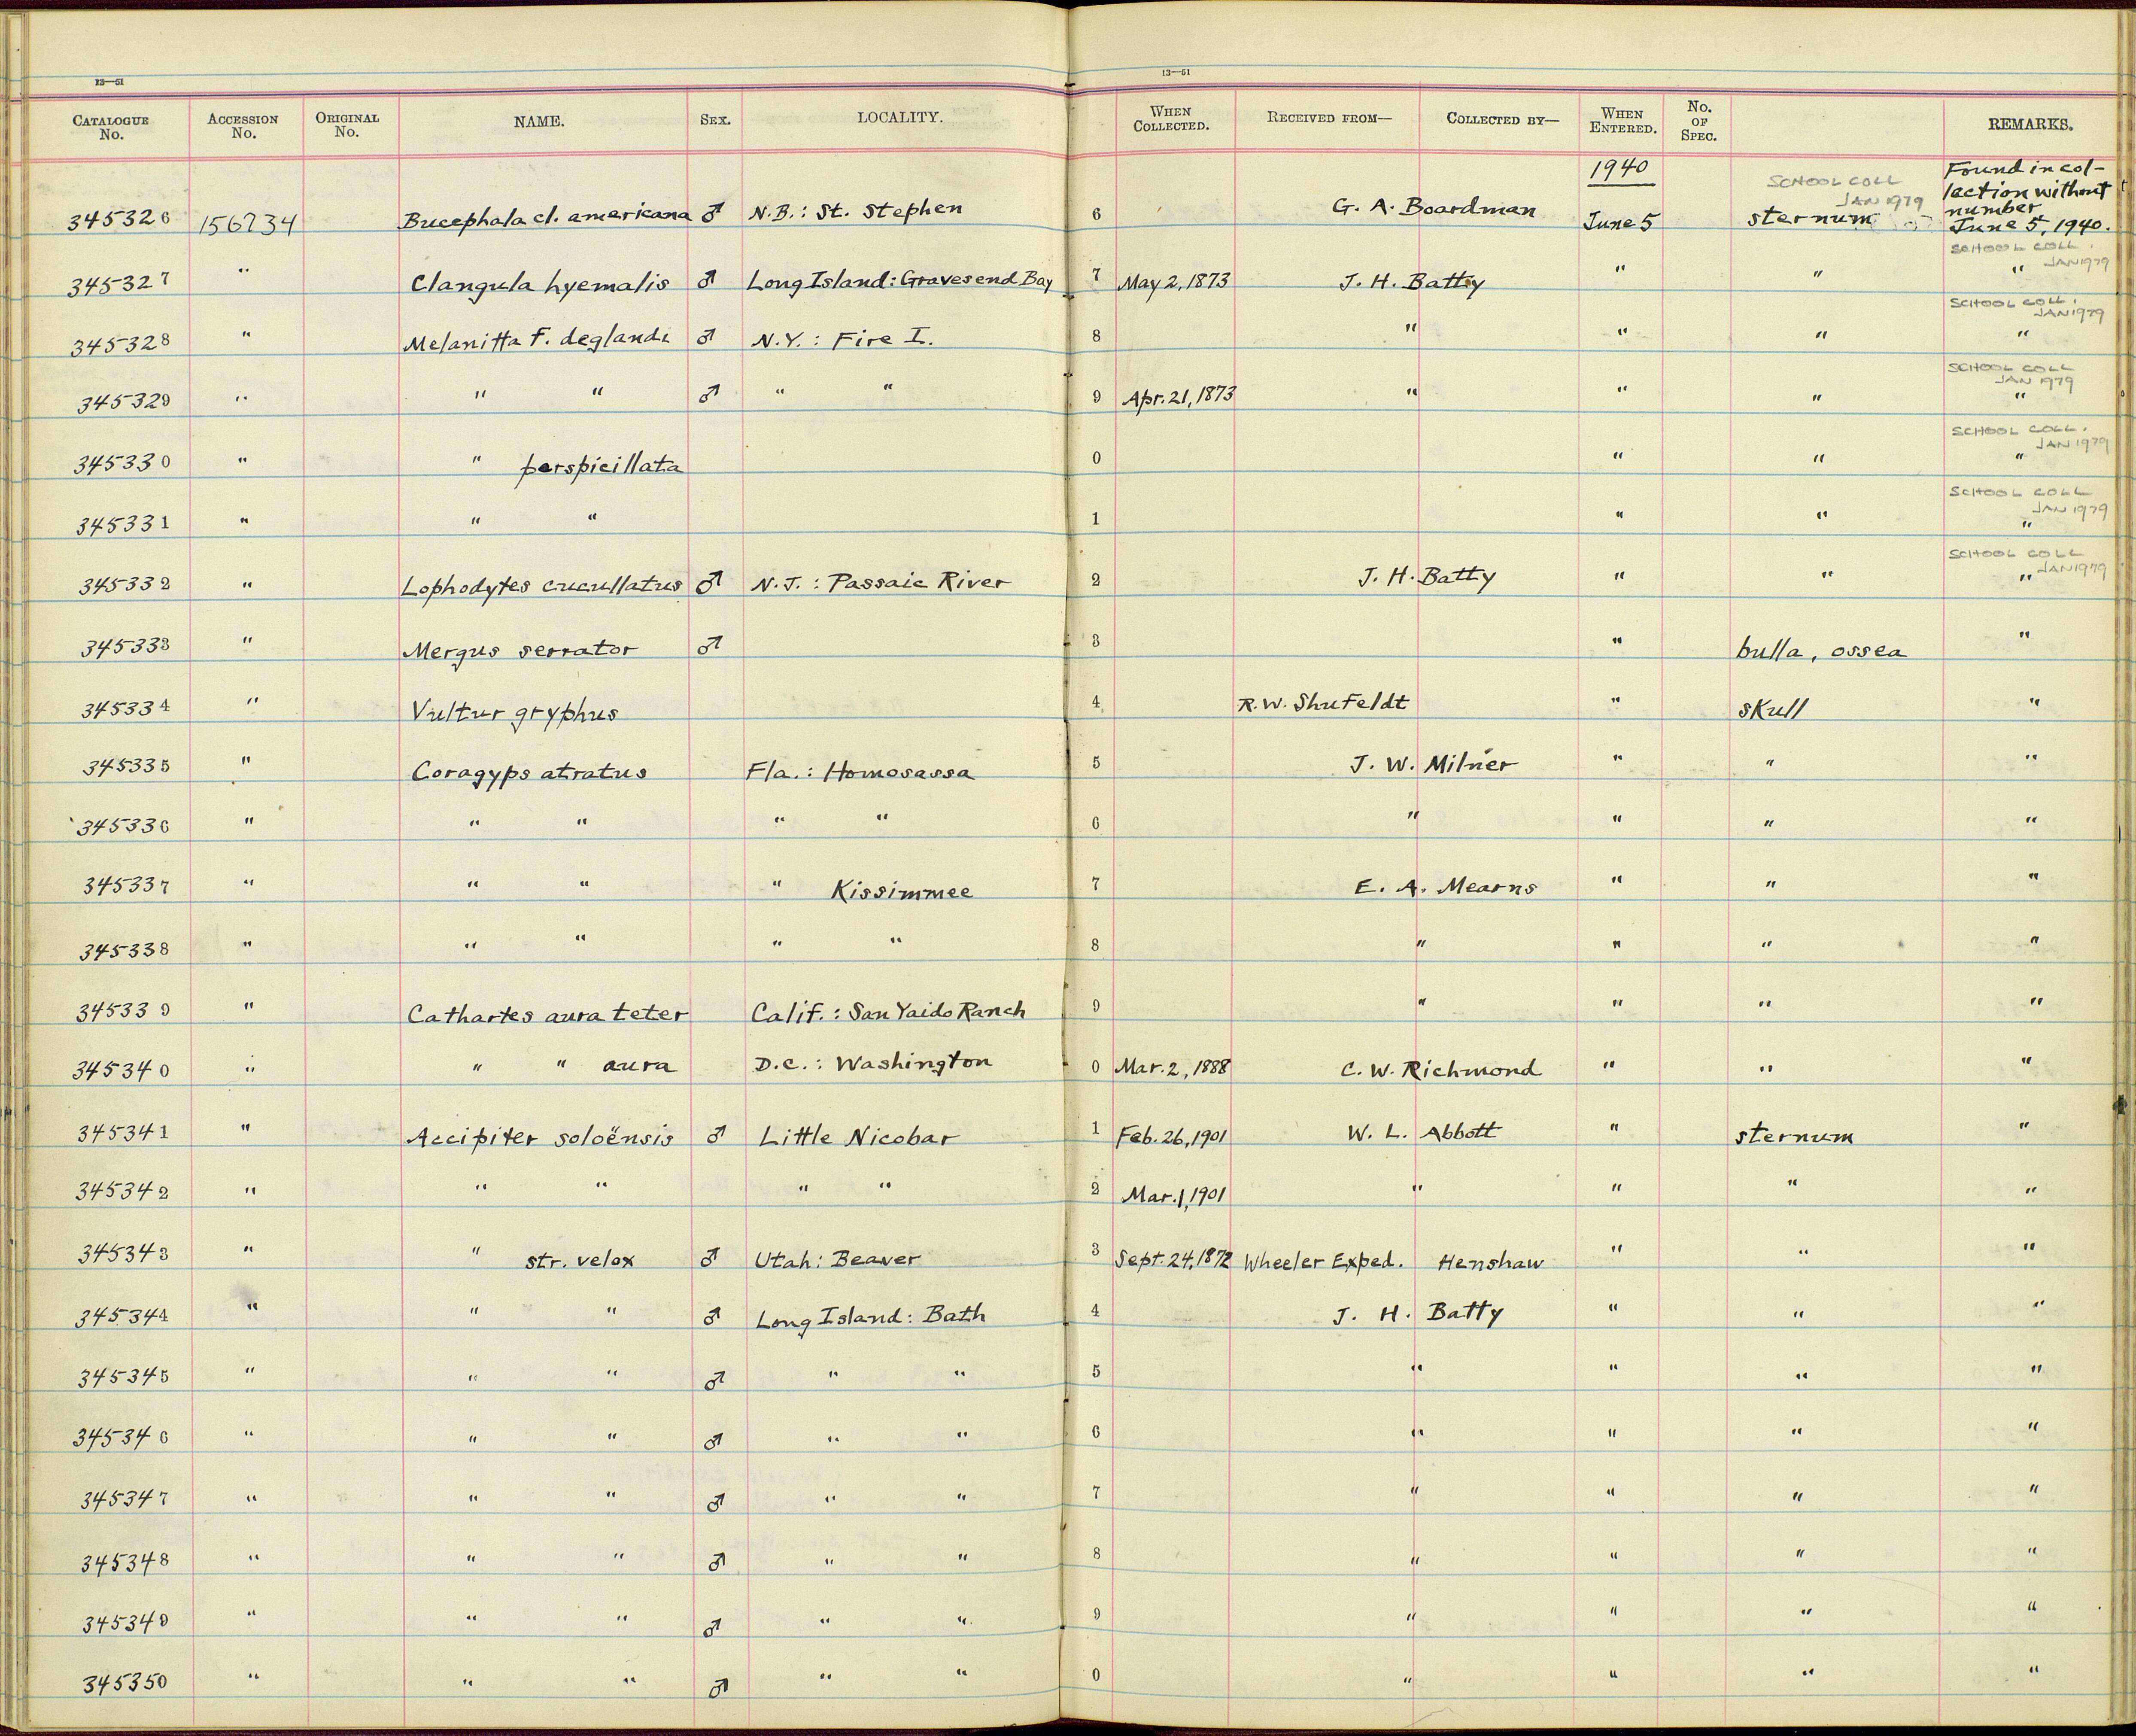 13—51
13—51
CATALOGUE No. ACCESSION No. ORIGINAL No. NAME. SEX. LOCALITY. WHEN COLLECTED. RECEIVED FROM— COLLECTED BY— WHEN ENTERED. No. OF SPEC. REMARKS.
1940 SCHOOL COLL JAN 1979 Found in collection without number June 5, 1940.
345326 156734 Bucephala cl. americana ♂ N.B.: St. Stephen 6 G. A. Boardman June 5 sternum
SCHOOL COLL. JAN 1979
345327 " Clangula hyemalis ♂ Long Island: Gravesend Bay 7 May 2, 1873 J. H. Batty " " "
SCHOOL COLL. JAN 1979
345328 " Melanitta f. deglandi ♂ N.Y.: Fire I. 8 " " " "
SCHOOL COLL JAN 1979
345329 " " " ♂ " " 9 Apr. 21, 1873 " " " "
SCHOOL COLL. JAN 1979
345330 " " perspicillata 0 " " "
SCHOOL COLL JAN 1979
345331 " " " 1 " " "
SCHOOL COLL JAN 1979
345332 " Lophodytes cucullatus ♂ N.J.: Passaic River 2 J. H. Batty " " "
345333 " Mergus serrator ♂ 3 " bulla, ossea "
345334 " Vultur gryphus 4 R. W. Shufeldt " skull "
345335 " Coragyps atratus Fla.: Homosassa 5 J. W. Milner " " "
345336 " " " " " 6 " " " "
345337 " " " " Kissimmee 7 E. A. Mearns " " "
345338 " " " " " 8 " " " "
345339 " Cathartes aura teter Calif.: San Yaido Ranch 9 " " " "
345340 " " " aura D.C.: Washington 0 Mar. 2, 1888 C. W. Richmond " " "
345341 " Accipiter soloënsis ♂ Little Nicobar 1 Feb. 26, 1901 W. L. Abbott " sternum "
345342 " " " " " 2 Mar. 1, 1901 " " " "
345343 " " str. velox ♂ Utah: Beaver 3 Sept. 24, 1872 Wheeler Exped. Henshaw " " "
345344 " " " ♂ Long Island: Bath 4 J. H. Batty " " "
345345 " " " ♂ " " 5 " " " "
345346 " " " ♂ " " 6 " " " "
345347 " " " ♂ " " 7 " " " "
345348 " " " ♂ " " 8 " " " "
345349 " " " ♂ " " 9 " " " "
345350 " " " ♂ " " 0 " " " "